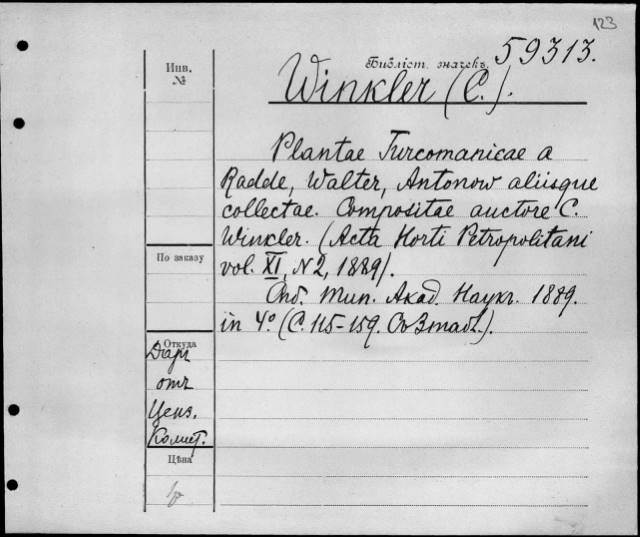 123
Библіот. значекъ. 59313.
Winkler (C.).
Инв.
№
Plantae Turcomanicae a
Radde, Walter, Antonow aliisque
collectae. Compositae auctore C.
Winkler. (Acta Horti Petropolitani
vol. XI, N 2, 1889).
Спб. Тип. Акад. Наукъ. 1889.
in 4.° (С. 115-159. Съ 3 табл.).
По заказу
Откуда
Даръ
отъ
Ценз.
Комит.
Цѣна